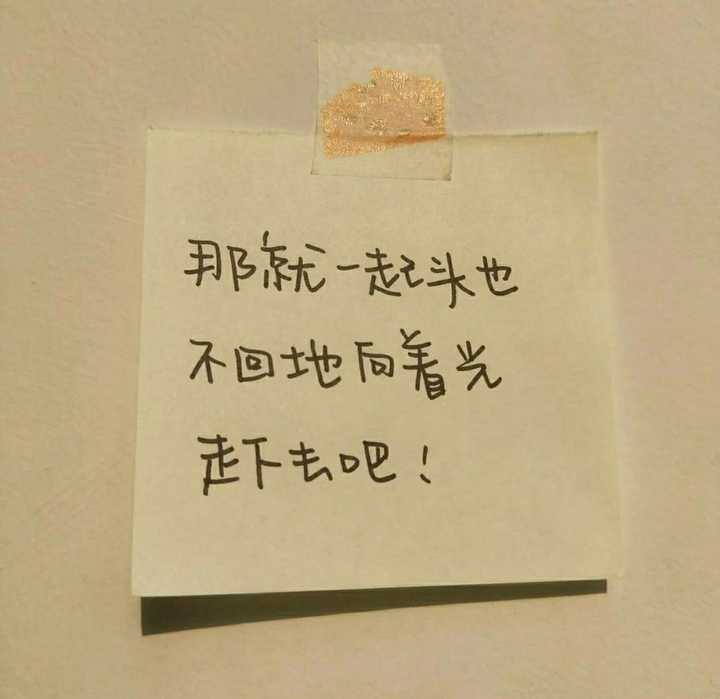 那就一起头也
不回地向着光
走下去吧！